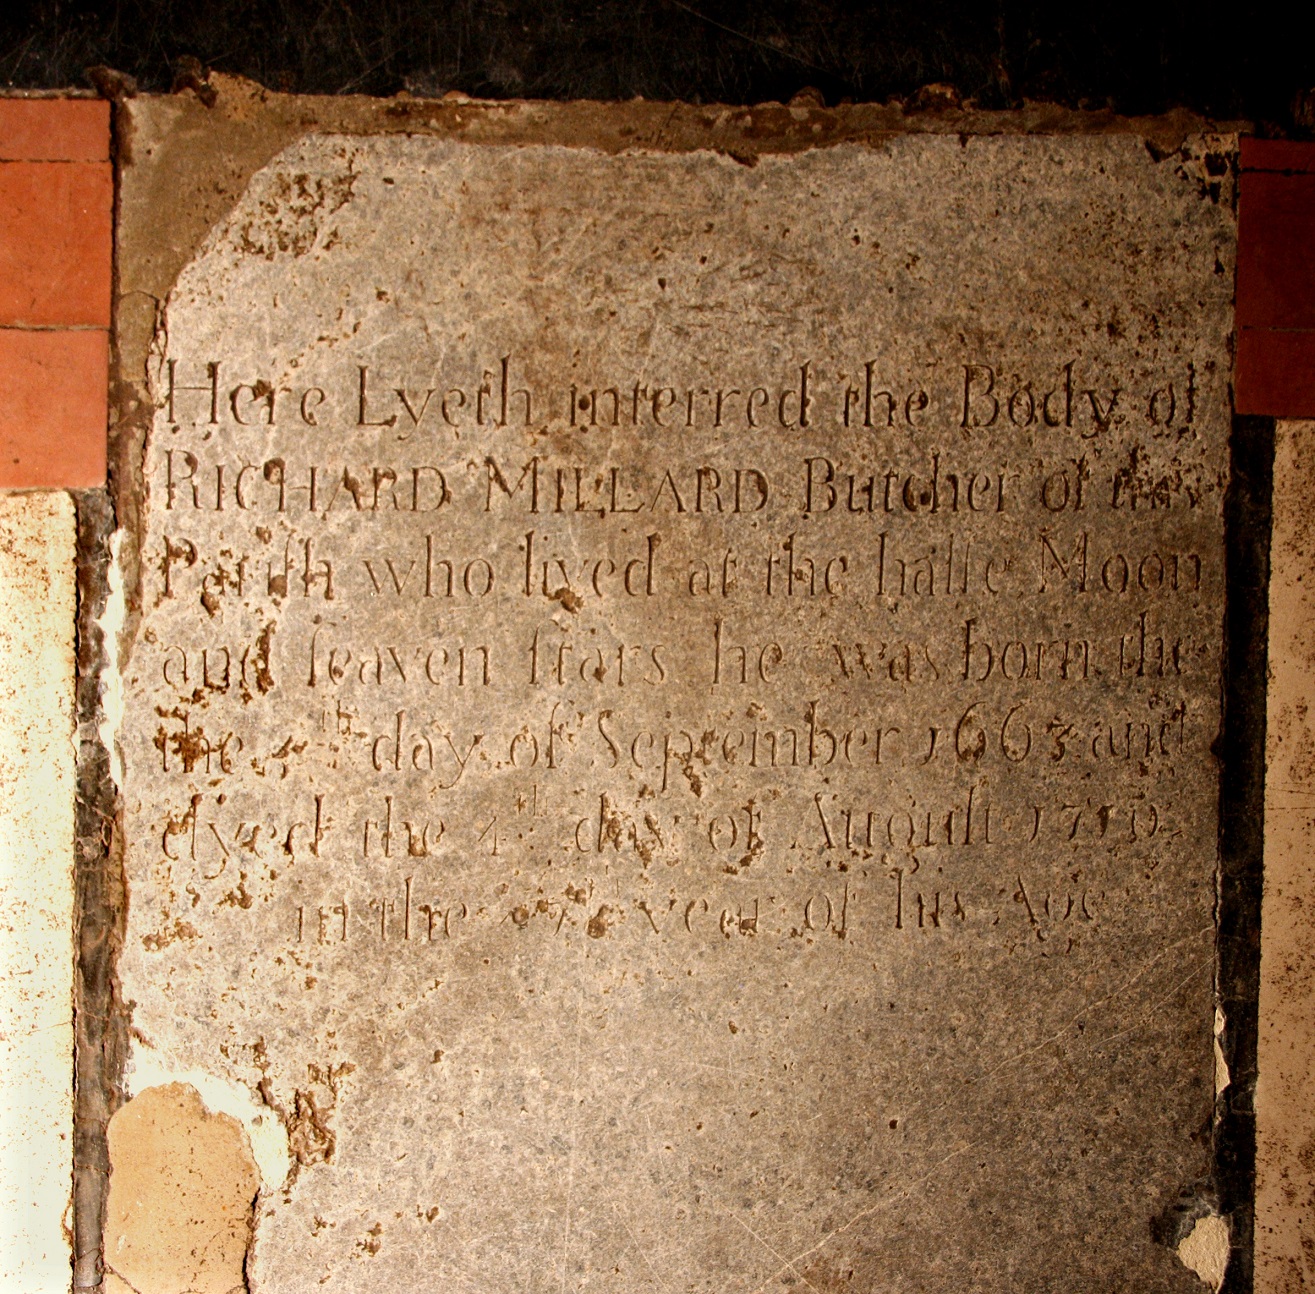 Here Lyeth interred the Body of
RICHARD MILLARD Butcher of this
Pariſh who lived at the halfe Moon
and ſeaven ſtars he was born the
the 4th day of September 1663 and
dyed the 4th day of Auguſt 1710
in the 47 year of his Age